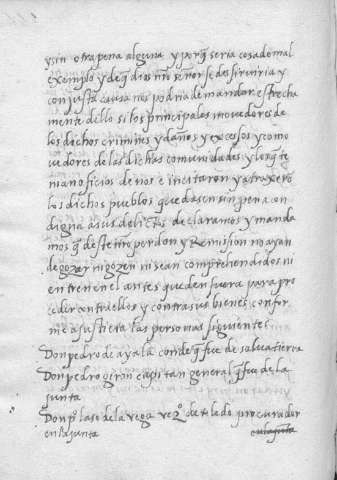 y sin otra pena alguna y porq̃ seria cosa de mal
exemplo y de q̃ dios nr̃o señor se dos sirviria y
con justa causa nos podria demandar estrecha
mente dello si los principales movedores de
los dichos crimines y daños y excesos y como
vedores de las dichas comunidades y los q̃ te
nian oficios de nos e incitaron y atraxerõ
los dichos pueblos quedasen sin pena con
digna a sus delictos declaramos y manda
mos q̃ deste nr̃o perdon y Remision no ayan
de gozar ni gozen ni sean comprehendidos ni
en tren en el antes queden fuera para pro
ceder contra ellos y contra sus bienes confor
me a justicia las personas siguientes
Don pedro de ayala conde q̃ fue de salvatierra
Don pedro giron capitan general q̃ fue de la
junta
Don pº laso de la vega vezº de toledo procurador
en la junta